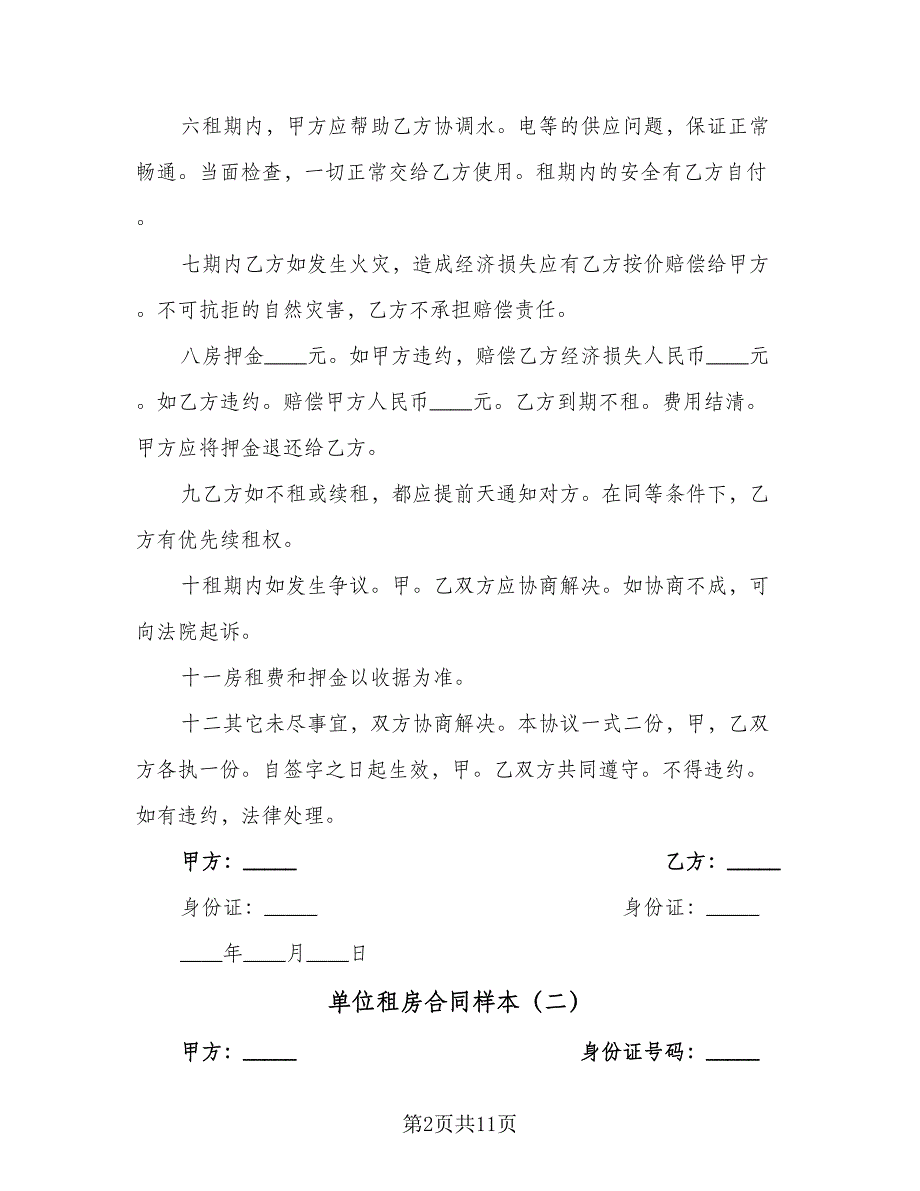 六租期内，甲方应帮助乙方协调水。电等的供应问题，保证正常
畅通。当面检查，一切正常交给乙方使用。租期内的安全有乙方自付
。
七期内乙方如发生火灾，造成经济损失应有乙方按价赔偿给甲方
。不可抗拒的自然灾害，乙方不承担赔偿责任。
八房押金____元。如甲方违约，赔偿乙方经济损失人民币____元
。如乙方违约。赔偿甲方人民币____元。乙方到期不租。费用结清。
甲方应将押金退还给乙方。
九乙方如不租或续租，都应提前天通知对方。在同等条件下，乙
方有优先续租权。
十租期内如发生争议。甲。乙双方应协商解决。如协商不成，可
向法院起诉。
十一房租费和押金以收据为准。
十二其它未尽事宜，双方协商解决。本协议一式二份，甲，乙双
方各执一份。自签字之日起生效，甲。乙双方共同遵守。不得违约。
如有违约，法律处理。
甲方：_____ 乙方：_____
身份证：_____ 身份证：_____
____年____月____日
单位租房合同样本（二）
甲方：_____ 身份证号码：_____
第2页共11页